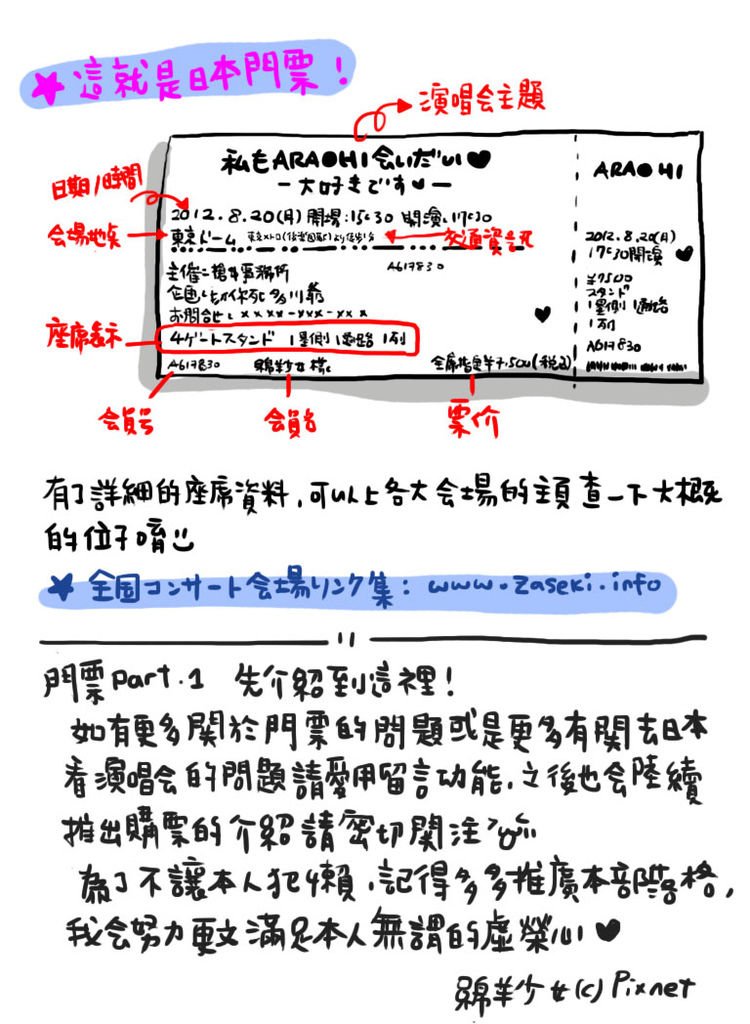 ★這就是日本門票！
演唱会主題
私もARA●HI会いたい♥
ー大好きです♥ー
ARA●HI
日期/時間
2012.8.20(月) 開場:15:30 開演:17:30
会場地点
東京ドーム
交通資訊
2012.8.20(月)
17:30開演
主催:
事務所
A617830
¥7500
スタンド
お問合せ:xxxx-xxx-xx
1塁側 1通路
1列
座席表示
4ゲートスタンド 1塁側 1通路 1列
A617830
A617830
綿羊少女様
全席指定¥7,500(税込)
会員号
会員名
票价
有了詳細的座席資料,可以上各大会場的主頁查一下大概
的位子唷
★全国コンサート会場リンク集: www.zaseki.info
門票part.1 先介紹到這裡!
如有更多關於門票的問題或是更多有關去日本
看演唱会的問題請愛用留言功能,之後也会陸續
推出購票的介紹請密切関注
為了不讓本人犯懶,記得多多推廣本部落格,
我会努力更文滿足本人無謂的虛榮心♥
綿羊少女(c)Pixnet